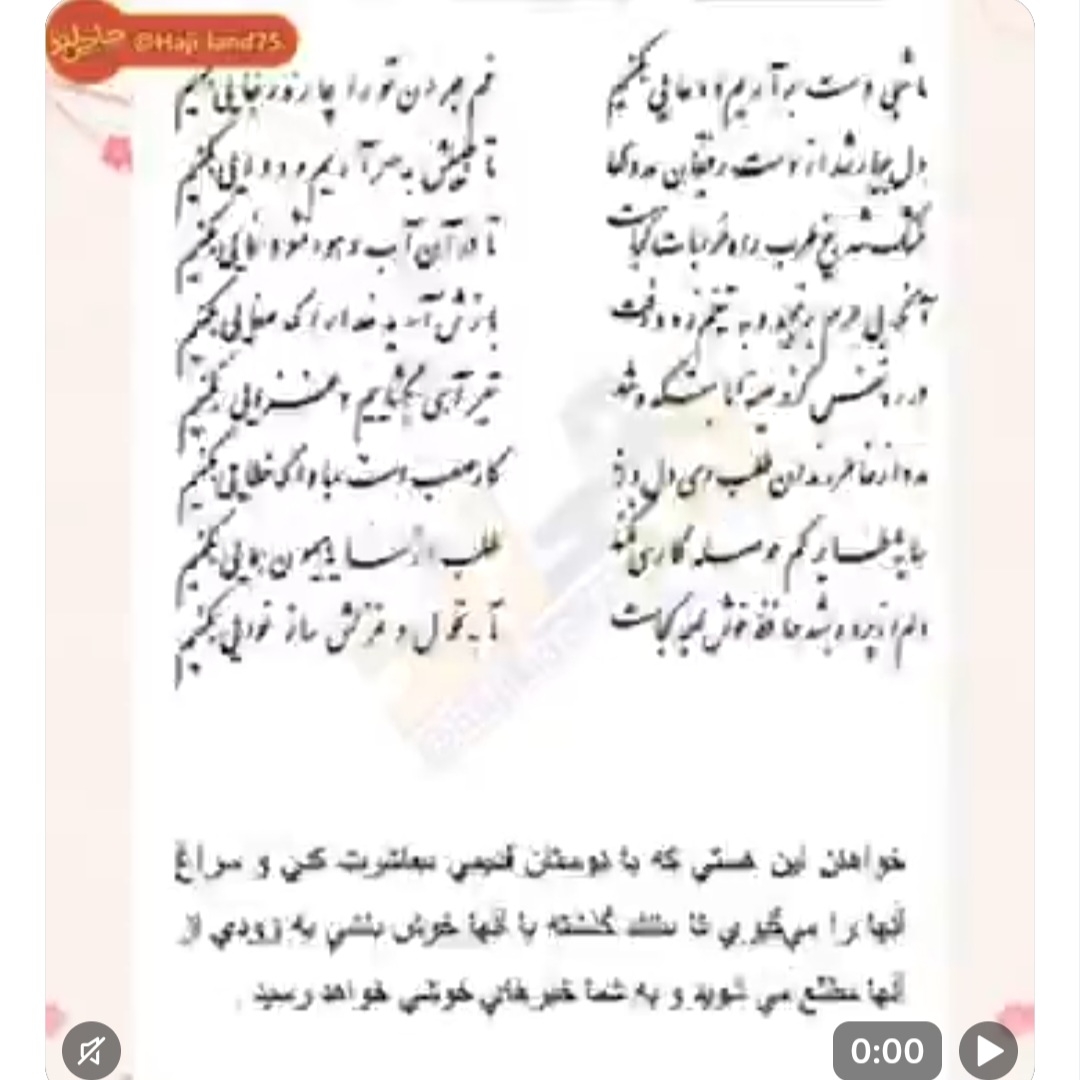 @Haji_land75
ما شبی دست برآریم و دعایی بکنیم غم هجران تو را چاره ز جایی بکنیم
دل بیمار شد از دست رفیقان مددی تا طبیبش به سر آریم و دوایی بکنیم
خشک شد بیخ طرب راه خرابات کجاست تا در آن آب و هوا نشو و نمایی بکنیم
آنکه بی جرم برنجید و به تیغم زد و رفت بازش آرید خدا را که صفایی بکنیم
در ره نفس کزو سینه ما بتکده شد تیر آهی بگشاییم و غزایی بکنیم
مدد از خاطر رندان طلب ای دل ورنه کار صعب است مبادا که خطایی بکنیم
سایه طایر کم حوصله کاری نکند طلب از سایه میمون همایی بکنیم
دلم از پرده بشد حافظ خوش لهجه کجاست تا به قول و غزلش ساز نوایی بکنیم
خواهان این هستي که با دوستان قديمي معاشرت کني و سراغ
آنها را مي‌گيري تا مانند گذشته با آنها خوش باشي به زودي از
آنها مطلع مي شويد و به شما خبرهاي خوشي خواهد رسيد .
0:00